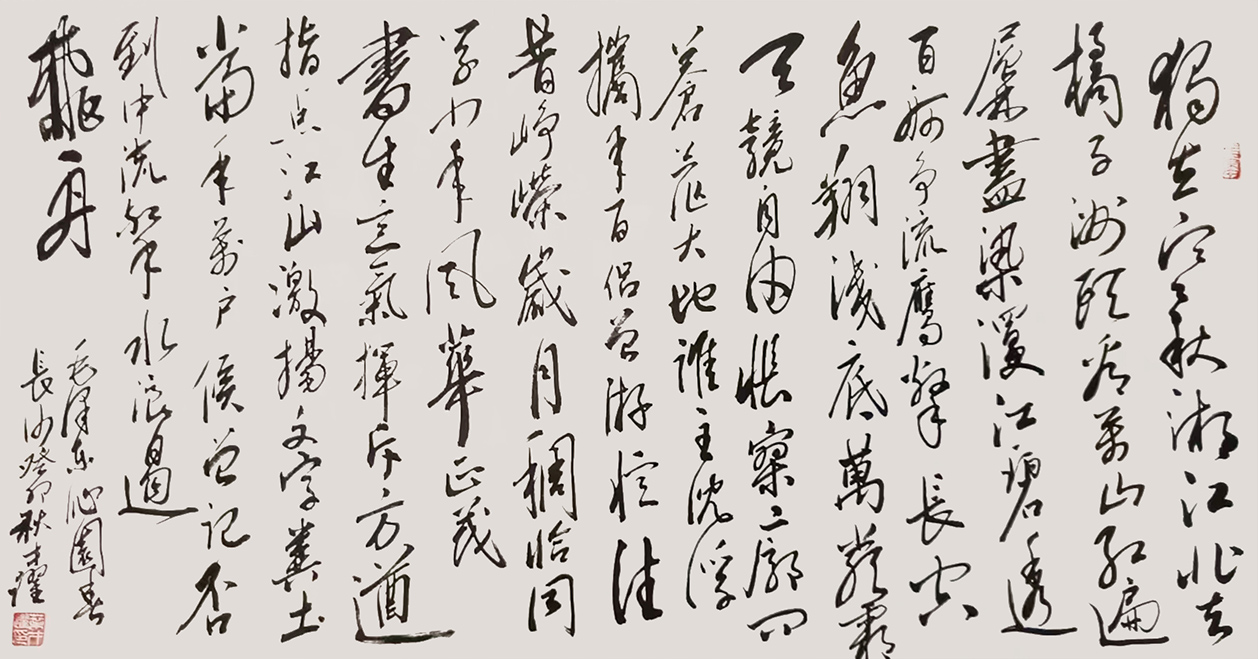 獨立寒秋湘江北去
橘子洲頭看萬山紅遍
層林盡染漫江碧透
百舸争流鷹擊長空
魚翔淺底萬類霜
天競自由悵寥廓問
蒼茫大地誰主沈浮
攜来百侣曾游憶往
昔崢嶸歲月稠恰同
學少年風華正茂
書生意氣揮斥方遒
指点江山激揚文字糞土
當年萬户侯曾記否
到中流擊水浪遏
飛舟
毛澤東沁園春
長沙癸卯秋